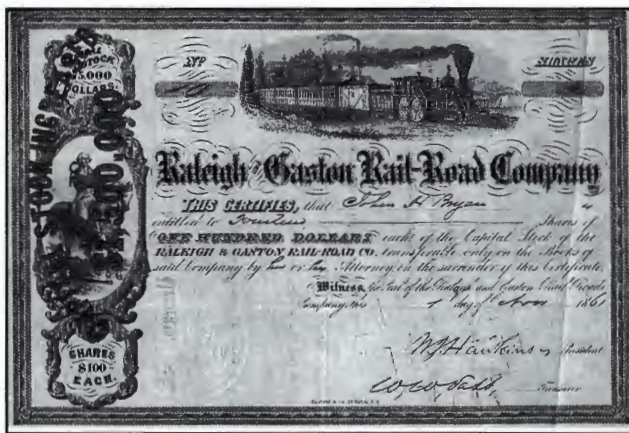 Nº
SHARES
STOCK
DOLLARS
STOCK INCREASED
Raleigh and Gaston Rail-Road Company
THIS CERTIFIES, that John H Bryan is
entitled to Fourteen Shares of
ONE HUNDRED DOLLARS each of the Capital Stock of the
RALEIGH & GASTON RAIL-ROAD CO. transferable only on the Books of
said Company by or Attorney, on the surrender of this Certificate.
Witness the Seal of the Raleigh and Gaston Rail-Road
Company, this 1 day of Nov 186
W J Hawkins President
W. W. Vass Treasurer
SHARES
$100
EACH.